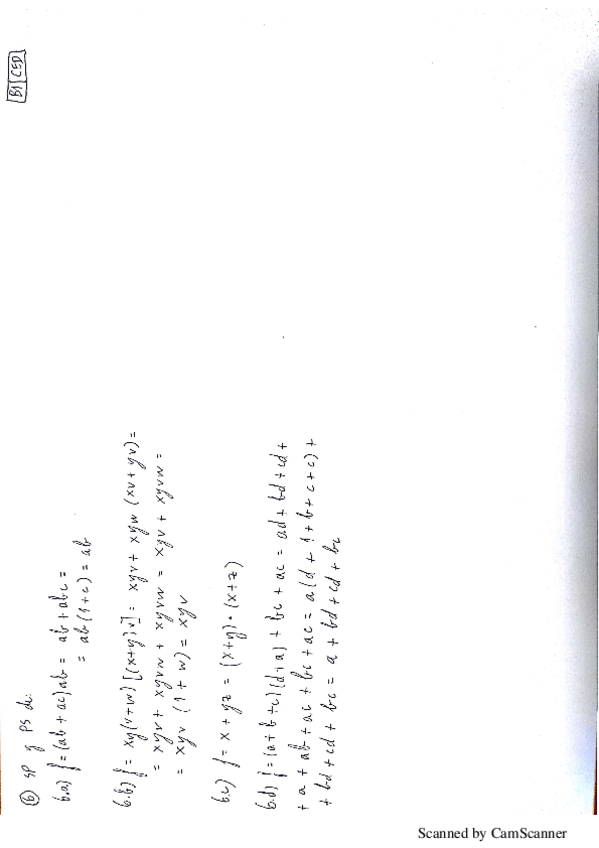 B1 CED
⑥ SP y PS de:
6.a) f = (ab + ac)ab = ab + abc =
= ab(1+c) = ab
6.b) f = xy(v+w)[(x+y)v] = xyv + xyw (xv + yv) =
= xyv + xyvw + xyvw = xyv + xyvw =
= xyv (1 + w) = xyv
6.c) f = x + yz = (x+y)·(x+z)
6.d) f = (a+b+c)(d+a) + bc + ac = ad + bd + cd +
+ a + ab + ac + bc + ac = a(d + 1 + b + c + c) +
+ bd + cd + bc = a + bd + cd + bc
Scanned by CamScanner